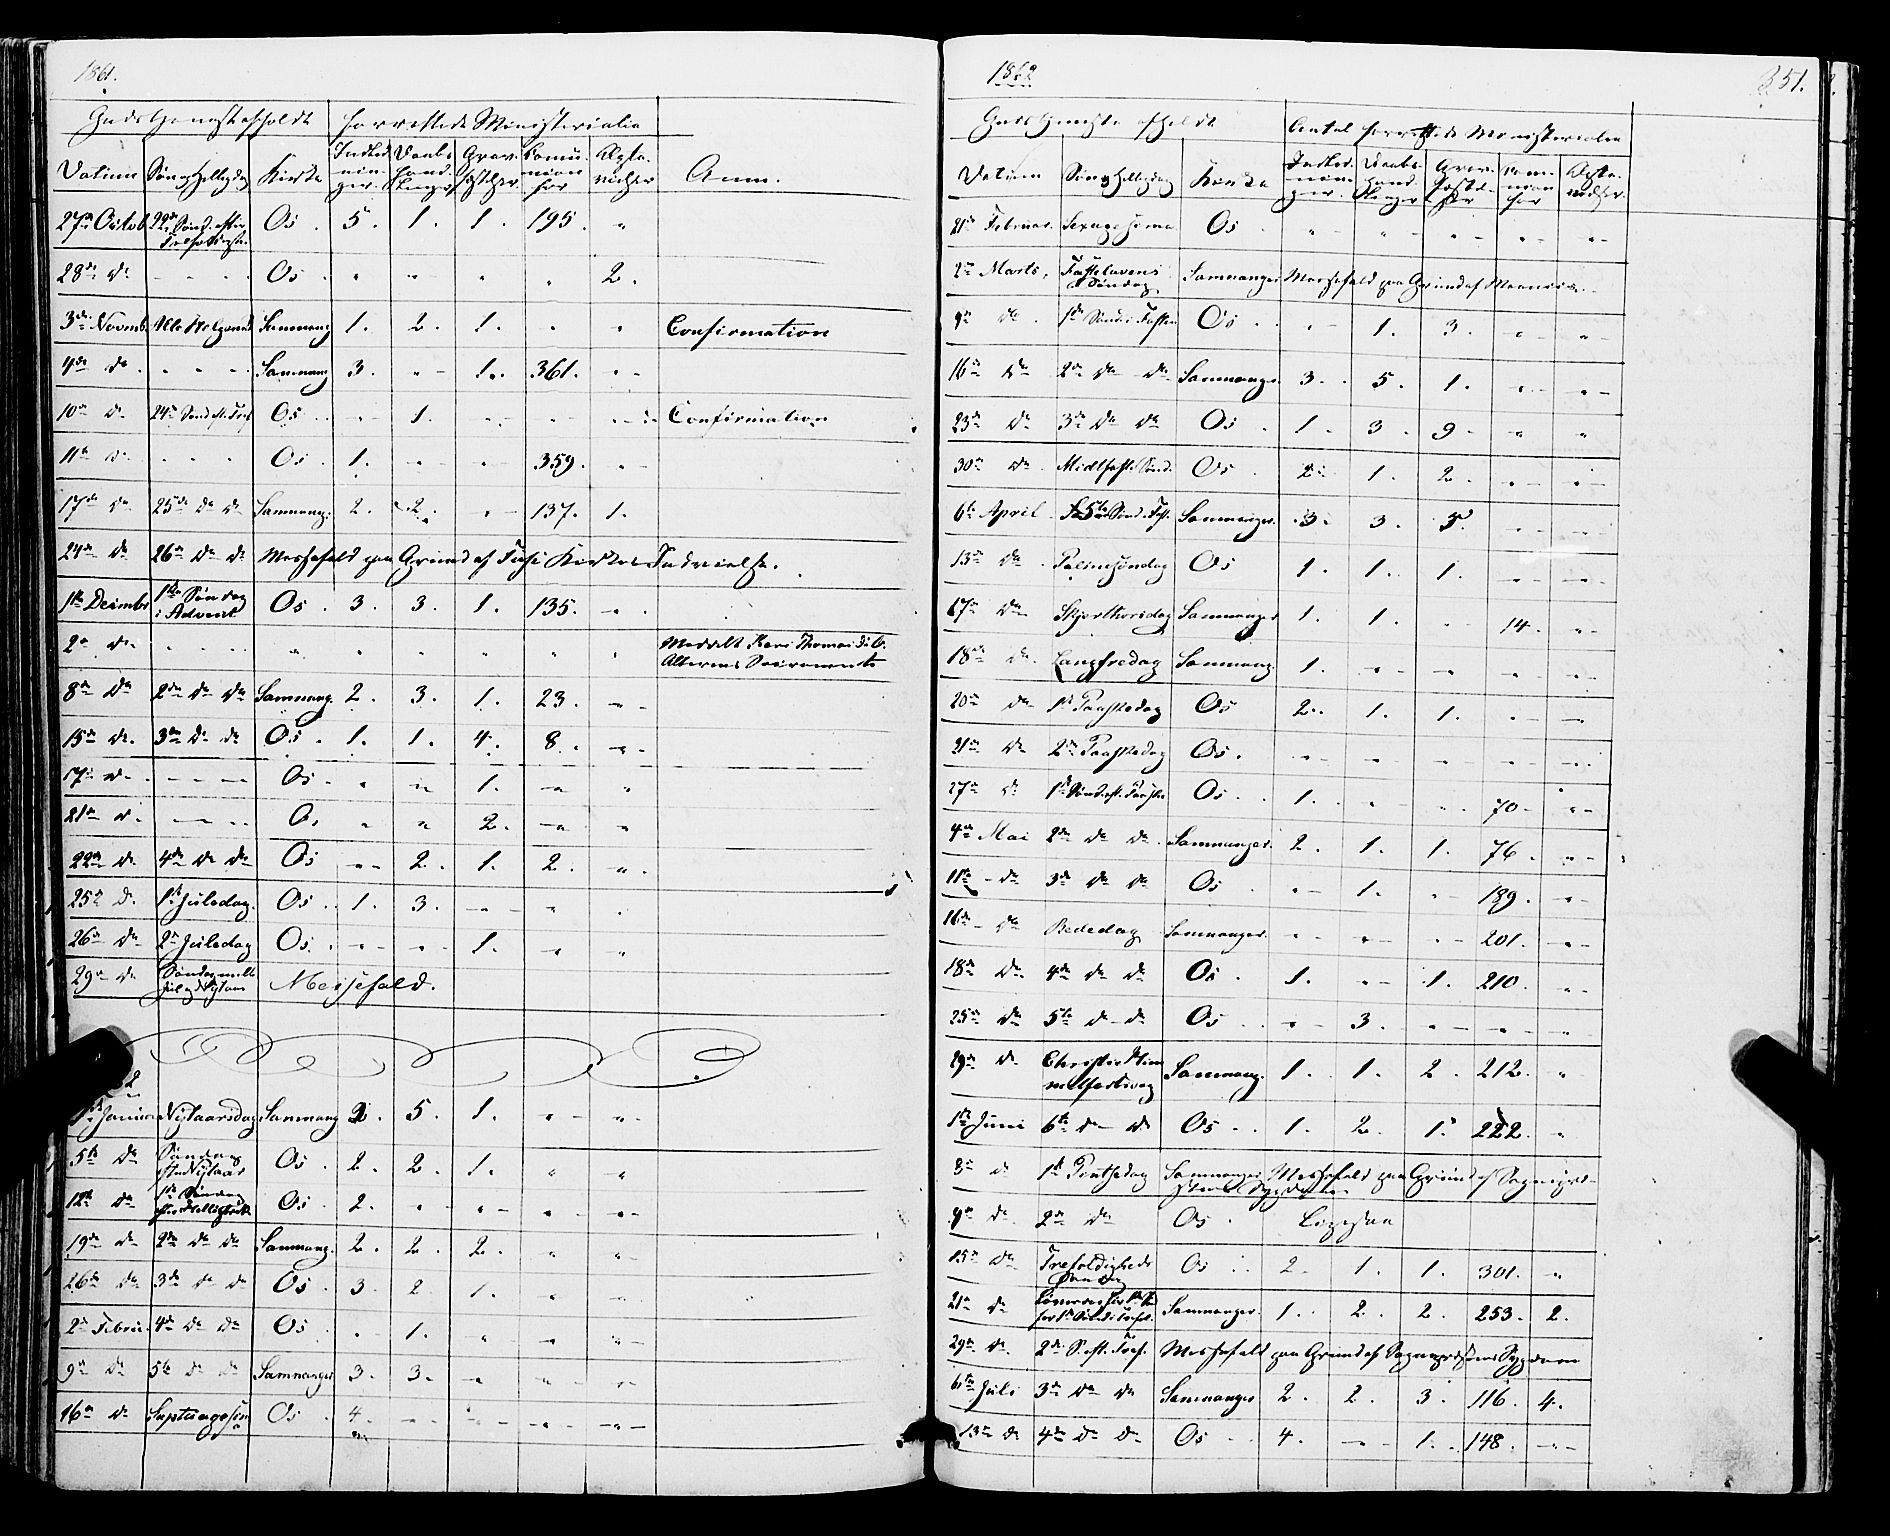 1861.
Gudstjenesteholdt | Forrettede Ministerialia
Datum | Søn og Helligdag | Kirke | Indled- ninger | Daabs- hand- linger | Grav- fæstelser | Comu- nion- ister | Ægte- vielser | Anm.
27de Octob. | 22de Sønd. efter Trefoldigh. | Os | 5. | 1. | 1. | 195. | "
28de do | - - - | Os | " | " | " | " | 2.
3die Novmb. | Alle Helgensd. | Samnang | 1. | 2. | 1. | " | " | Confirmation
4de do | - - - | Samnang | 3. | " | 1. | 361. | "
10de do | 24de Sønd. eft. Tref. | Os | " | 1. | " | " | " | Confirmation
11te do | - - - | Os | 1. | " | " | 359. | "
17de do | 25de do do | Samnang. | 2. | 2. | " | 137. | 1.
24de do | 26de do do | Messefald paa Grund af Fuse Kirkes Indvielse.
1ste Decimbr | 1ste Søndag i Advent | Os | 3. | 3. | 1. | 135. | "
2den do | - - - | " | " | " | " | " | " | Meddelt Kari Thomasd.
Alterens Sacramente
8de do | 2den do do | Samnang. | 2. | 3. | 1. | 23. | "
15de do | 3die do do | Os | 1. | 1. | 4. | 8. | "
17de do | - - - | Os | " | " | 1. | " | "
21de do | - - - | Os | " | " | 2. | " | "
22de do | 4de do do | Os | " | 2. | 1. | 2. | "
25de do | 1ste Juledag. | Os | 1. | 3. | " | " | "
26de do | 2den Juledag | Os | " | " | 1. | " | "
29de do | Søndag mell. Jul og Nytaar | Messefald.
1ste Januar | Nytaarsdag | Samnang | 2. | 5. | 1. | " | "
5te do | Søndag efter Nytaar | Os | 2. | 2. | 1. | " | "
12te do | 1ste Søndag | Os | 2. | " | " | " | "
19de do | 2den do do | Samnang. | 2. | 2. | 2. | " | "
26de do | 3die do do | Os | 3. | 2. | 1. | " | "
2den Februar | 4de do do | Os | " | 1. | " | " | "
9de do | 5te do do | Samnanger | 3. | 3. | " | " | "
16de do | Septuagesima | Os | 4. | " | " | " | "
1862
351.
Gudstjeneste holdt | Antal forrettede Ministerialia
Datum | Søn og Helligdag | Kirke | Indled- ninger | Daabs- hand- linger | Grav- fæstel- ser | Comu- nion- ister | Ægte- vielser.
21de Februar. | Sexagesima | Os | " | " | " | " | "
2den Marts. | Fastelavens Søndag | Samnanger | Messefald paa Grund af
9de do | 1ste Sønd. i Fasten | Os | " | 1. | 3. | " | "
16de do | 2den do do | Samnanger | 3. | 5. | 1. | " | "
23de do | 3die do do | Os | 1. | 3. | 9. | " | "
30de do | Midtfaste Sønd. | Os | 2. | 1. | 2. | " | "
6te April | 5te Sønd. i Fast. | Samnanger. | 3. | 3. | 5. | " | "
13de do | Palmesøndag | Os | 1. | 1. | 1. | " | "
17de do | Skjærthorsdag | Samnanger | 1. | 1. | " | 14. | "
18de do | Langfredag | Samnang. | 1. | " | " | " | "
20de do | 1ste Paaskedag | Os | 2. | 1. | 1. | " | "
21de do | 2den Paaskedag | Os. | " | " | " | " | "
27de do | 1ste Sønd. eft. Paaske | Os | 1. | " | " | 70. | "
4de Mai | 2den do do | Samnanger. | 2. | 1. | 1. | 76. | "
11te do | 3die do do | Os | " | 1. | " | 189. | "
16de do | Bededag | Samnanger. | " | " | " | 201. | "
18de do | 4de do do | Os | 1. | " | 1. | 210. | "
25de do | 5te do do | Os | " | 3. | " | " | "
29de do | Christi Himmelfartsdag | Samnang. | 1. | 1. | 2. | 212. | "
1ste Juni | 6te do do | Os | 1. | 2. | 1. | 222. | "
8de do | 1ste Pintsedag | Samnanger | Messefald paa Grund af Sognepræstens Sygdom
9de do | 2den do | Os | Ligesaa
15de do | Trefoldigheds Søndag | Os | 2. | 1. | 1. | 301. | "
21de do | Samnanger. | 1. | 2. | 2. | 253. | 2.
29de do | 2den S. eft. Tref. | Messefald paa Grund af Sognepræstens Sygdom
6te Juli | 3die do do | Samnanger | 2. | 2. | 3. | 116. | 4.
13de do | 4de do do | Os | 4. | " | 1. | 148. | "